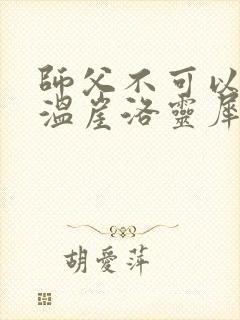 師父不可以
溫崖洛靈犀
胡愛萍